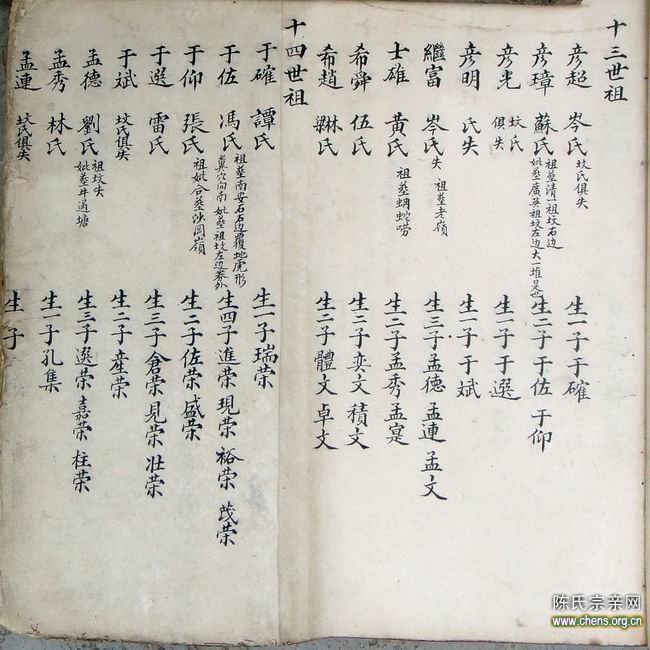 十三世祖
彦超 岑氏 坟氏俱失 生一子于確
彦璋 蘇氏 祖塟清一祖坟右边 妣塟廣英祖坟左边大一堆是也 生二子于佐 于仰
彦光 坟氏俱失 生一子于選
彦明 氏失 生一子于斌
繼富 岑氏失 祖塟老嶺 生三子孟德 孟連 孟文
士雄 黄氏 祖塟蜩蛇嶗 生二子孟秀 孟寔
希舜 伍氏 生二子奕文 積文
希趙 林氏 梁 生二子體文 卓文
十四世祖
于確 譚氏 生一子瑞荣
于佐 馮氏 祖塟南安石石边覆地虎形 糞穴向南 妣塟祖坟左边 生四子進荣 現荣 裕荣 茂荣
于仰 張氏 祖妣合塟沙岡嶺 生二子佐荣 盛荣
于選 雷氏 生三子倉荣 見荣 壮荣
于斌 坟氏俱失 生二子產荣
孟德 劉氏 祖坟失 妣塟井過塘 生三子選荣 嘉荣 柱荣
孟秀 林氏 生一子孔集
孟連 坟氏俱失 生 子
陈氏宗亲网
www.chens.org.cn